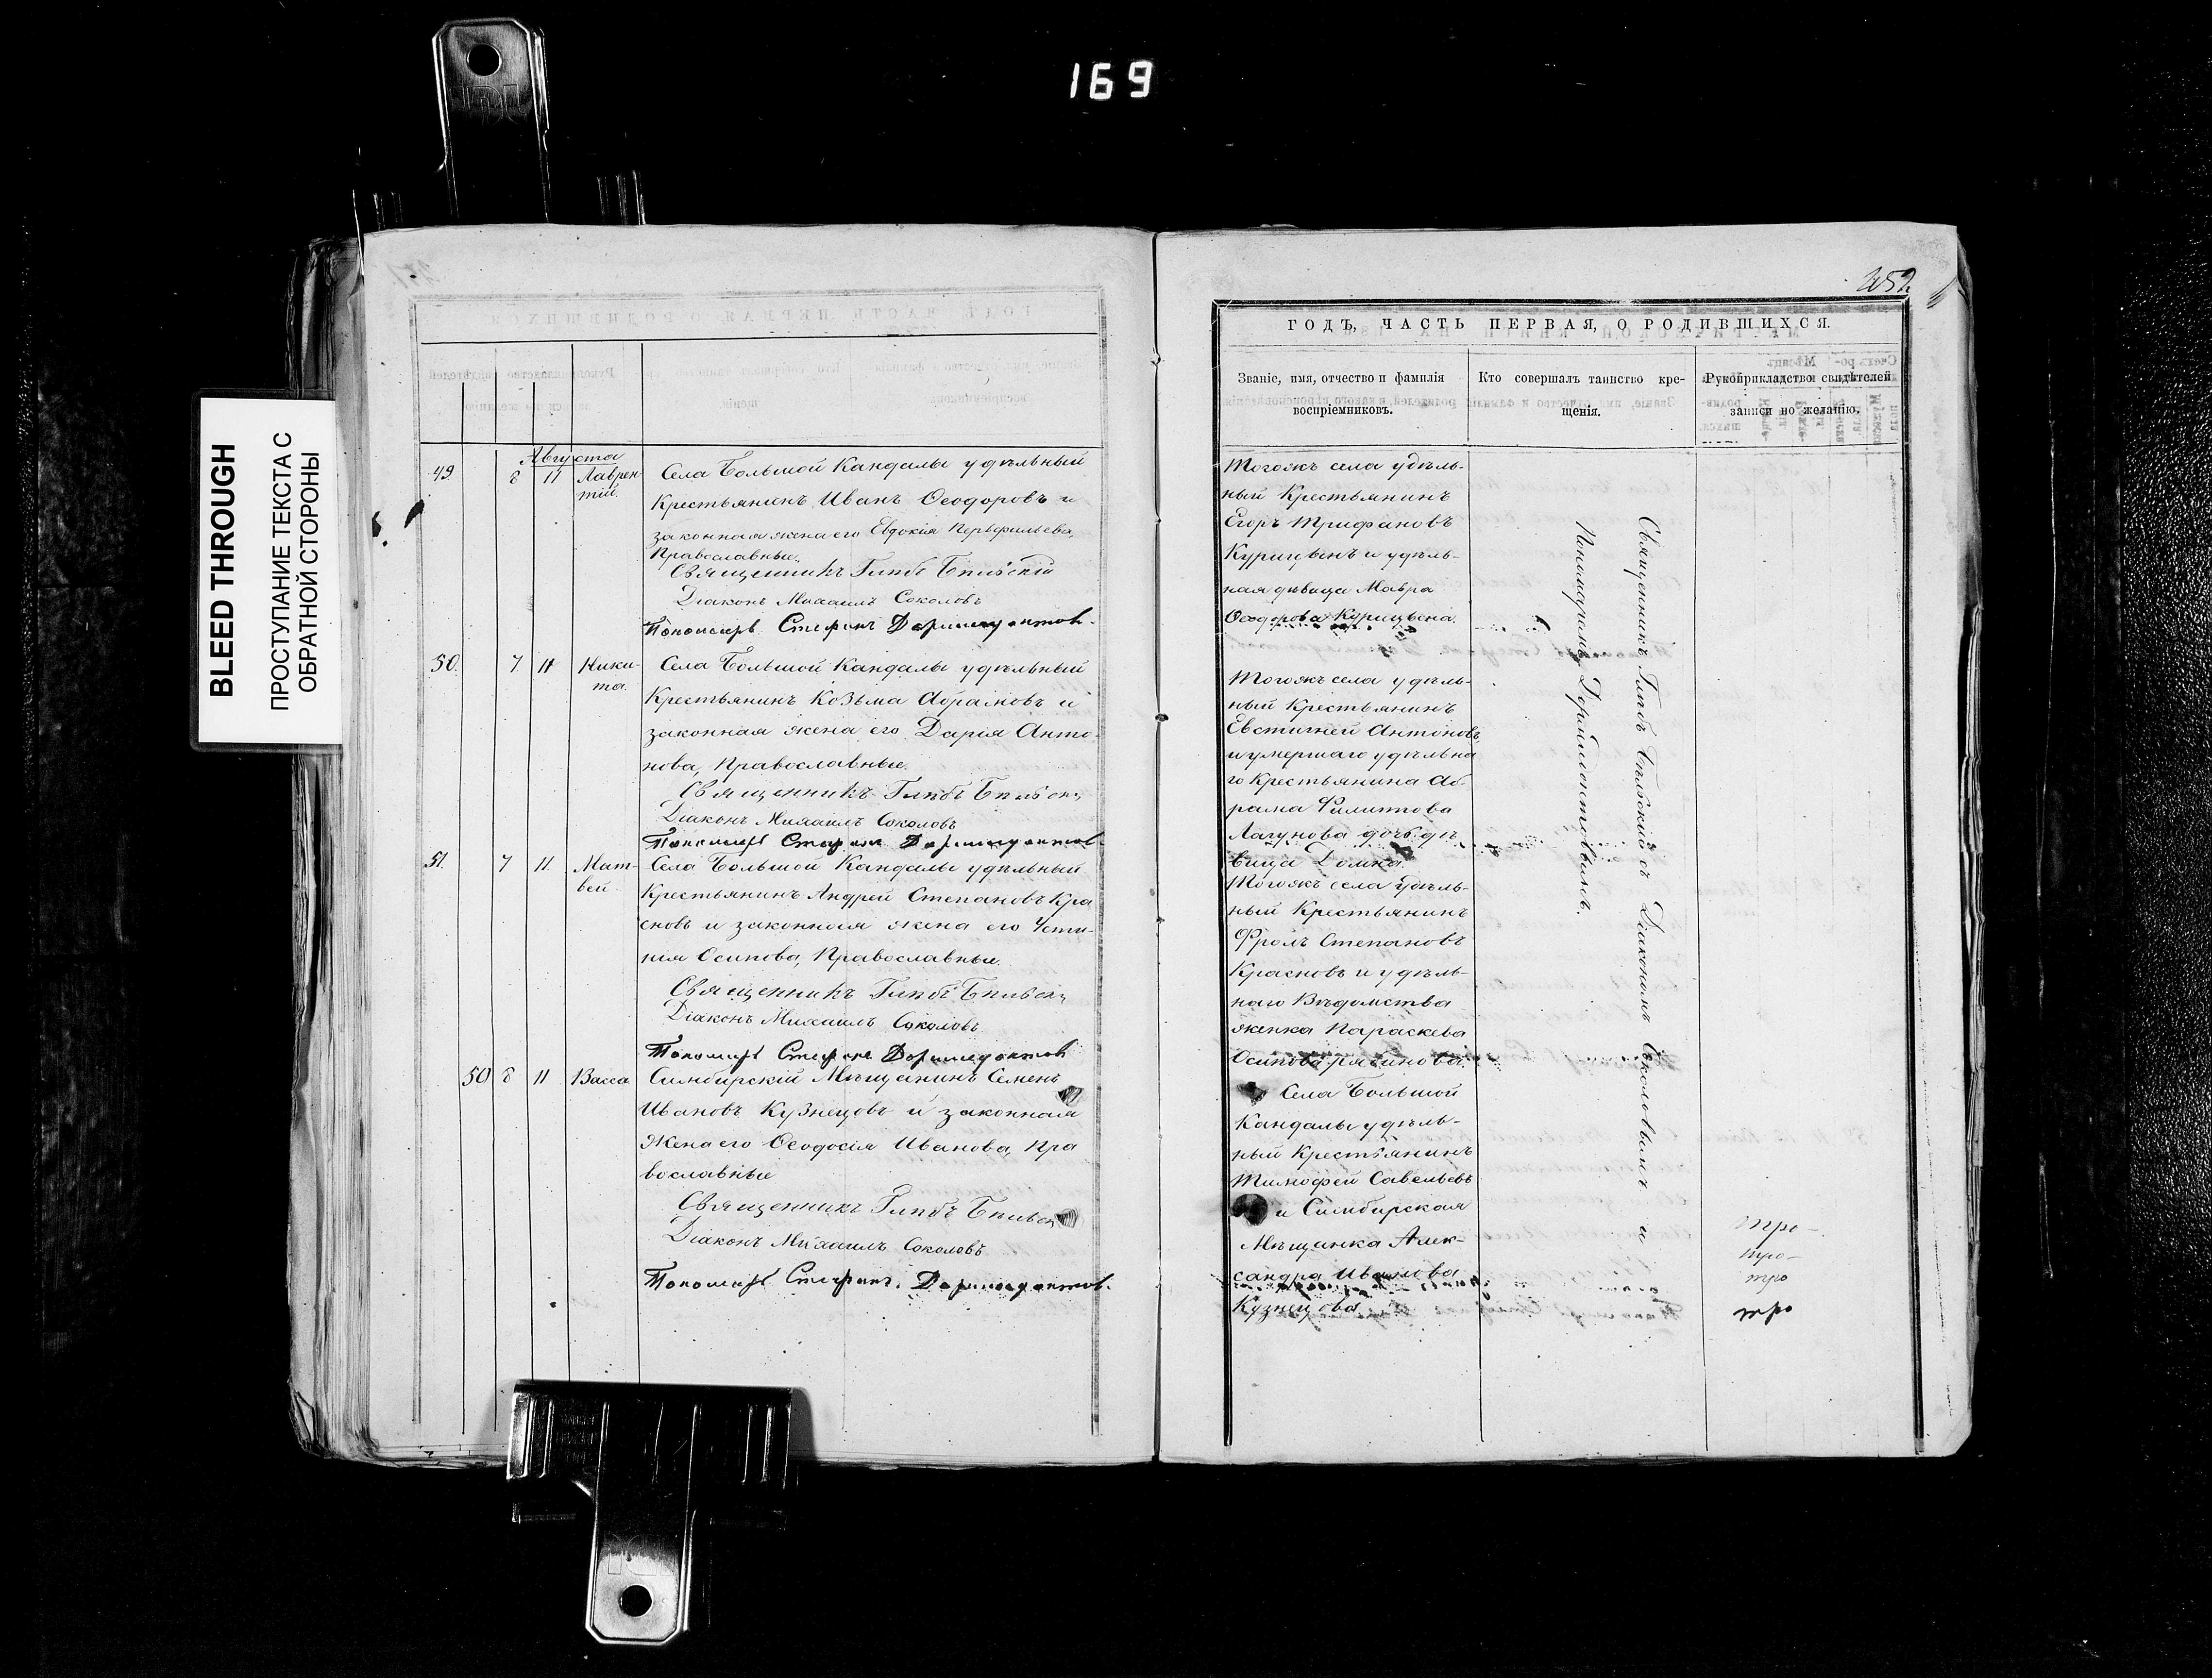 169
BLEED THROUGH
ПРОСТУПАНИЕ ТЕКСТА С
ОБРАТНОЙ СТОРОНЫ
Августа
49. 8 11 Лаврен-
тій.
Села Большой Кандалы удѣльный
Крестьянинъ Иванъ Ѳеодоровъ и
законная жена его Евдокія Перфильева,
Православные.
Священникъ Глѣбъ
Діаконъ Михаилъ Соколовъ
Пономарь Стефанъ Доримедонтов.
50. 7 11 Ники-
та.
Села Большой Кандалы удѣльный
Крестьянинъ Козьма Абрамовъ и
законная жена его Дарія Анто-
нова, Православные.
Священникъ Глѣбъ
Діаконъ Михаилъ Соколовъ
Пономарь Стефанъ Доримедонтов.
51. 7 11. Мат-
вей
Села Большой Кандалы удѣльный
Крестьянинъ Андрей Степановъ Кра
сновъ и законная жена его Усти-
нія Осипова, Православные.
Священникъ Глѣбъ
Діаконъ Михаилъ Соколовъ
Пономарь Стефанъ Доримедонтов
50 8 11 Васса
Симбирскій Мѣщанинъ Семенъ
Ивановъ Кузнецовъ и законная
Жена его Ѳеодосія Иванова, Пра
вославные
Священникъ Глѣбъ
Діаконъ Михаилъ Соколовъ
Пономарь Стефанъ Доримедонтов.
252
ГОДЪ, ЧАСТЬ ПЕРВАЯ, О РОДИВШИХСЯ.
Званіе, имя, отчество и фамилія
воспріемниковъ.
Кто совершалъ таинство кре-
щенія.
Рукоприкладство свидѣтелей
записи по желанію.
Тогожъ села удѣль-
ный Крестьянинъ
Егоръ Трифановъ
Курицынъ и удѣль-
ная дѣвица Мавра
Ѳеодорова Курицына.
Тогожъ села удѣль-
ный Крестьянинъ
Евстигней Антоновъ
и умершаго удѣльна
го Крестьянина Аб-
рама Филипова
Лагунова дочь дѣ
вица Домна.
Тогожъ села удѣль-
ный Крестьянинъ
Фролъ Степановъ
Красновъ и удѣль-
наго Вѣдомства
женка Параскева
Осипова
Села Большой
Кандалы удѣль-
ный Крестьянинъ
Тимофей Савельевъ
и Симбирская
Мѣщанка Алек-
сандра Иванова
Кузнецова
Священникъ Глѣбъ съ Діакономъ Соколовымъ и
Пономаремъ Доримедонтовымъ.
тро-
тро-
тро
тро